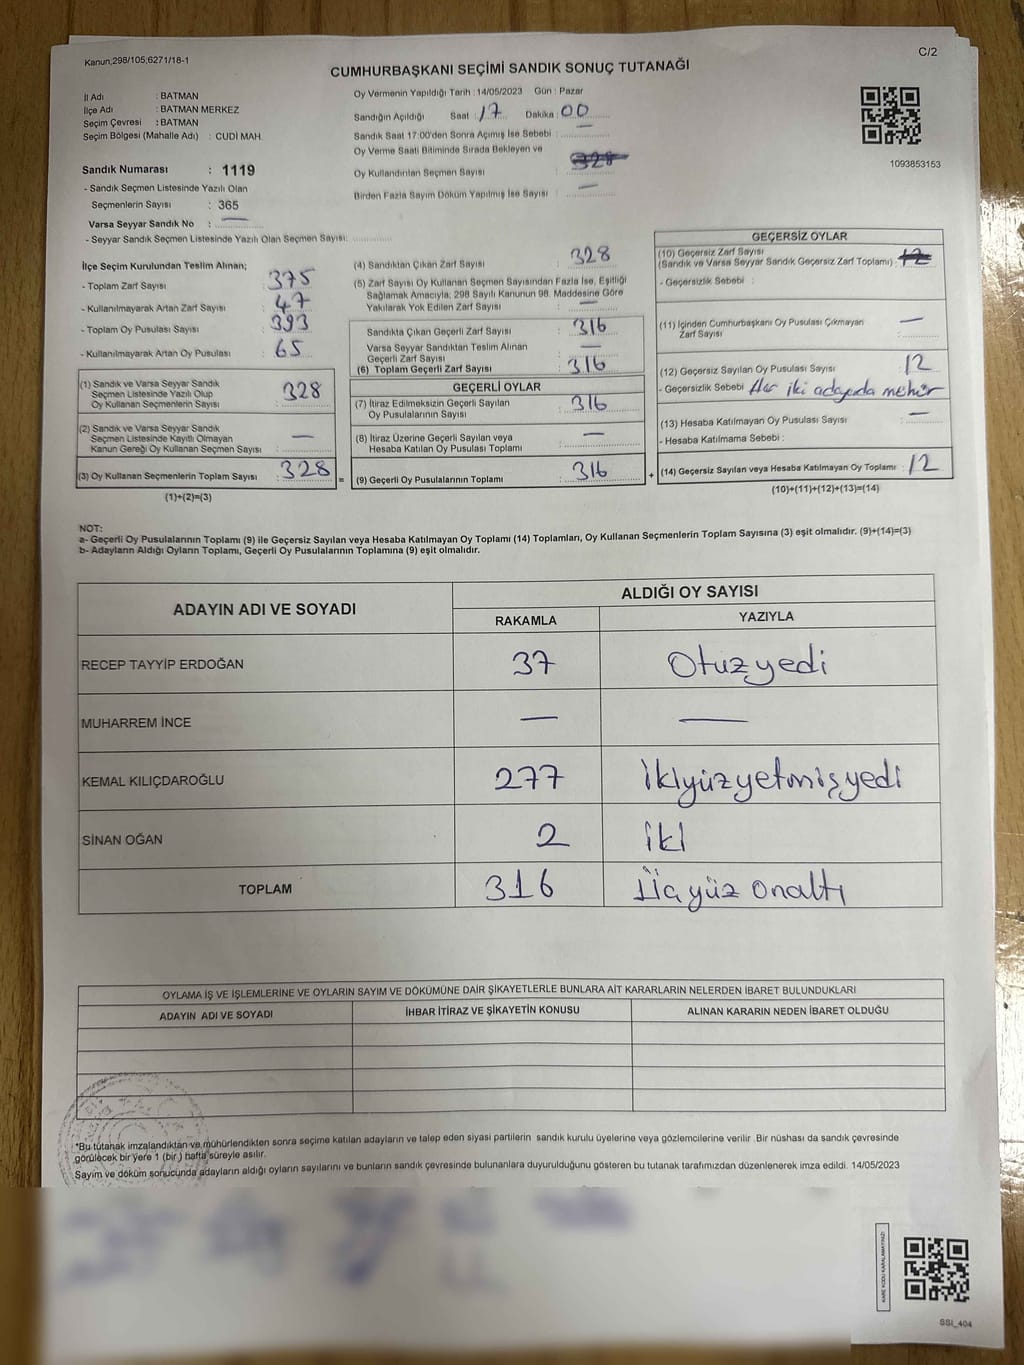 Kanun,298/105;6271/18-1
C/2
CUMHURBAŞKANI SEÇİMİ SANDIK SONUÇ TUTANAĞI
İl Adı : BATMAN
İlçe Adı : BATMAN MERKEZ
Seçim Çevresi : BATMAN
Seçim Bölgesi (Mahalle Adı) : CUDİ MAH.
Sandık Numarası : 1119
- Sandık Seçmen Listesinde Yazılı Olan
Seçmenlerin Sayısı : 365
Varsa Seyyar Sandık No : —
- Seyyar Sandık Seçmen Listesinde Yazılı Olan Seçmen Sayısı:
Oy Vermenin Yapıldığı Tarih : 14/05/2023 Gün : Pazar
Sandığın Açıldığı Saat : 17 Dakika : 00
Sandık Saat 17:00'den Sonra Açımış İse Sebebi : —
Oy Verme Saati Bitiminde Sırada Bekleyen ve
Oy Kullandırılan Seçmen Sayısı : 328
Birden Fazla Sayım Döküm Yapılmış İse Sayısı : —
1093853153
İlçe Seçim Kurulundan Teslim Alınan;
- Toplam Zarf Sayısı : 375
- Kullanılmayarak Artan Zarf Sayısı : 47
- Toplam Oy Pusulası Sayısı : 393
- Kullanılmayarak Artan Oy Pusulası : 65
(1) Sandık ve Varsa Seyyar Sandık
Seçmen Listesinde Yazılı Olup
Oy Kullanan Seçmenlerin Sayısı : 328
(2) Sandık ve Varsa Seyyar Sandık
Seçmen Listesinde Kayıtlı Olmayan
Kanun Gereği Oy Kullanan Seçmen Sayısı : —
(3) Oy Kullanan Seçmenlerin Toplam Sayısı : 328
(1)+(2)=(3)
=
(4) Sandıktan Çıkan Zarf Sayısı : 328
(5) Zarf Sayısı Oy Kullanan Seçmen Sayısından Fazla İse, Eşitliği
Sağlamak Amacıyla; 298 Sayılı Kanunun 98. Maddesine Göre
Yakılarak Yok Edilen Zarf Sayısı : —
Sandıkta Çıkan Geçerli Zarf Sayısı : 316
Varsa Seyyar Sandıktan Teslim Alınan
Geçerli Zarf Sayısı : —
(6) Toplam Geçerli Zarf Sayısı : 316
GEÇERLİ OYLAR
(7) İtiraz Edilmeksizin Geçerli Sayılan
Oy Pusulalarının Sayısı : 316
(8) İtiraz Üzerine Geçerli Sayılan veya
Hesaba Katılan Oy Pusulası Toplamı : —
(9) Geçerli Oy Pusulalarının Toplamı : 316
+
GEÇERSİZ OYLAR
(10) Geçersiz Zarf Sayısı
(Sandık ve Varsa Seyyar Sandık Geçersiz Zarf Toplamı) : 12
- Geçersizlik Sebebi :
(11) İçinden Cumhurbaşkanı Oy Pusulası Çıkmayan
Zarf Sayısı : —
(12) Geçersiz Sayılan Oy Pusulası Sayısı : 12
- Geçersizlik Sebebi : Her iki adayada mühür
(13) Hesaba Katılmayan Oy Pusulası Sayısı : —
- Hesaba Katılmama Sebebi :
(14) Geçersiz Sayılan veya Hesaba Katılmayan Oy Toplamı : 12
(10)+(11)+(12)+(13)=(14)
NOT:
a- Geçerli Oy Pusulalarının Toplamı (9) ile Geçersiz Sayılan veya Hesaba Katılmayan Oy Toplamı (14) Toplamları, Oy Kullanan Seçmenlerin Toplam Sayısına (3) eşit olmalıdır. (9)+(14)=(3)
b- Adayların Aldığı Oyların Toplamı, Geçerli Oy Pusulalarının Toplamına (9) eşit olmalıdır.
ADAYIN ADI VE SOYADI
ALDIĞI OY SAYISI
RAKAMLA YAZIYLA
RECEP TAYYİP ERDOĞAN 37 Otuzyedi
MUHARREM İNCE — —
KEMAL KILIÇDAROĞLU 277 ikiyüzyetmişyedi
SİNAN OĞAN 2 iki
TOPLAM 316 Üçyüz onaltı
OYLAMA İŞ VE İŞLEMLERİNE VE OYLARIN SAYIM VE DÖKÜMÜNE DAİR ŞİKAYETLERLE BUNLARA AİT KARARLARIN NELERDEN İBARET BULUNDUKLARI
ADAYIN ADI VE SOYADI İHBAR İTİRAZ VE ŞİKAYETİN KONUSU ALINAN KARARIN NEDEN İBARET OLDUĞU
*Bu tutanak imzalandıktan ve mühürlendikten sonra seçime katılan adayların ve talep eden siyasi partilerin sandık kurulu üyelerine veya gözlemcilerine verilir .Bir nüshası da sandık çevresinde
görülecek bir yere 1 (bir) hafta süreyle asılır.
Sayım ve döküm sonucunda adayların aldığı oyların sayılarını ve bunların sandık çevresinde bulunanlara duyurulduğunu gösteren bu tutanak tarafımızdan düzenlenerek imza edildi. 14/05/2023
KARE KODU KARALAMAYINIZ!
SSİ_404